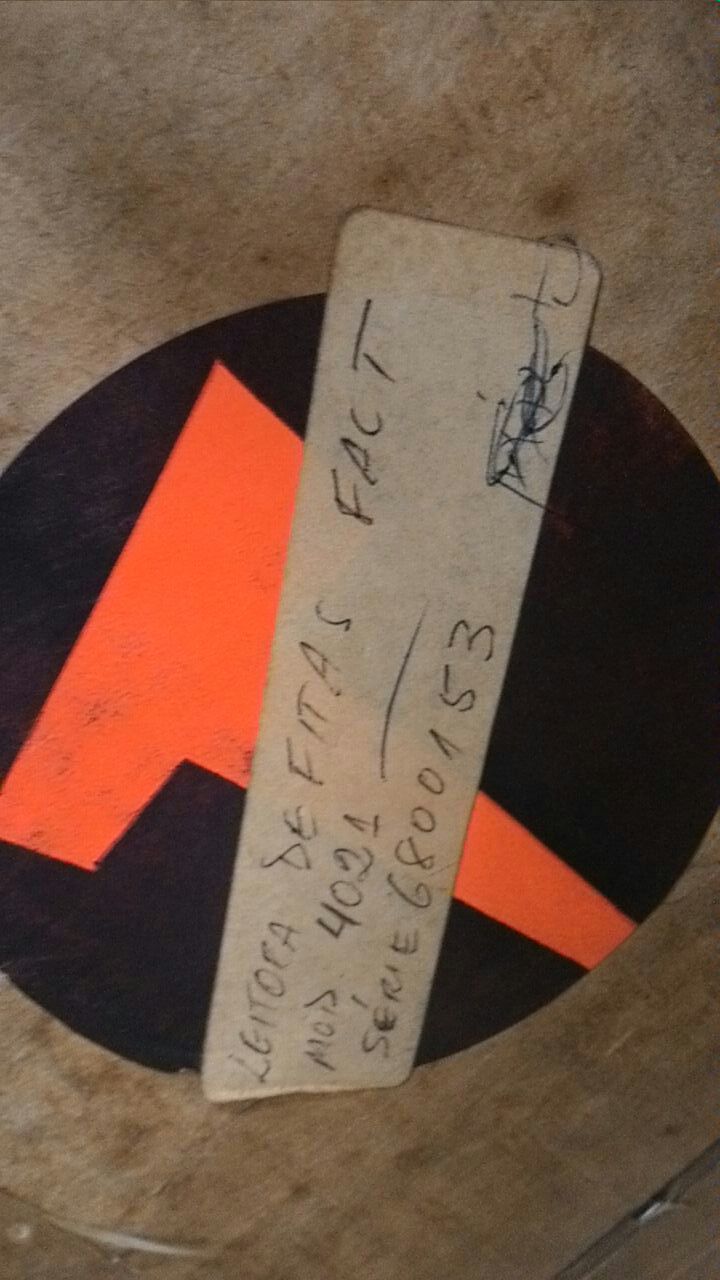 LEITORA DE FITAS FACT
MOD. 4021
SÉRIE 6800153